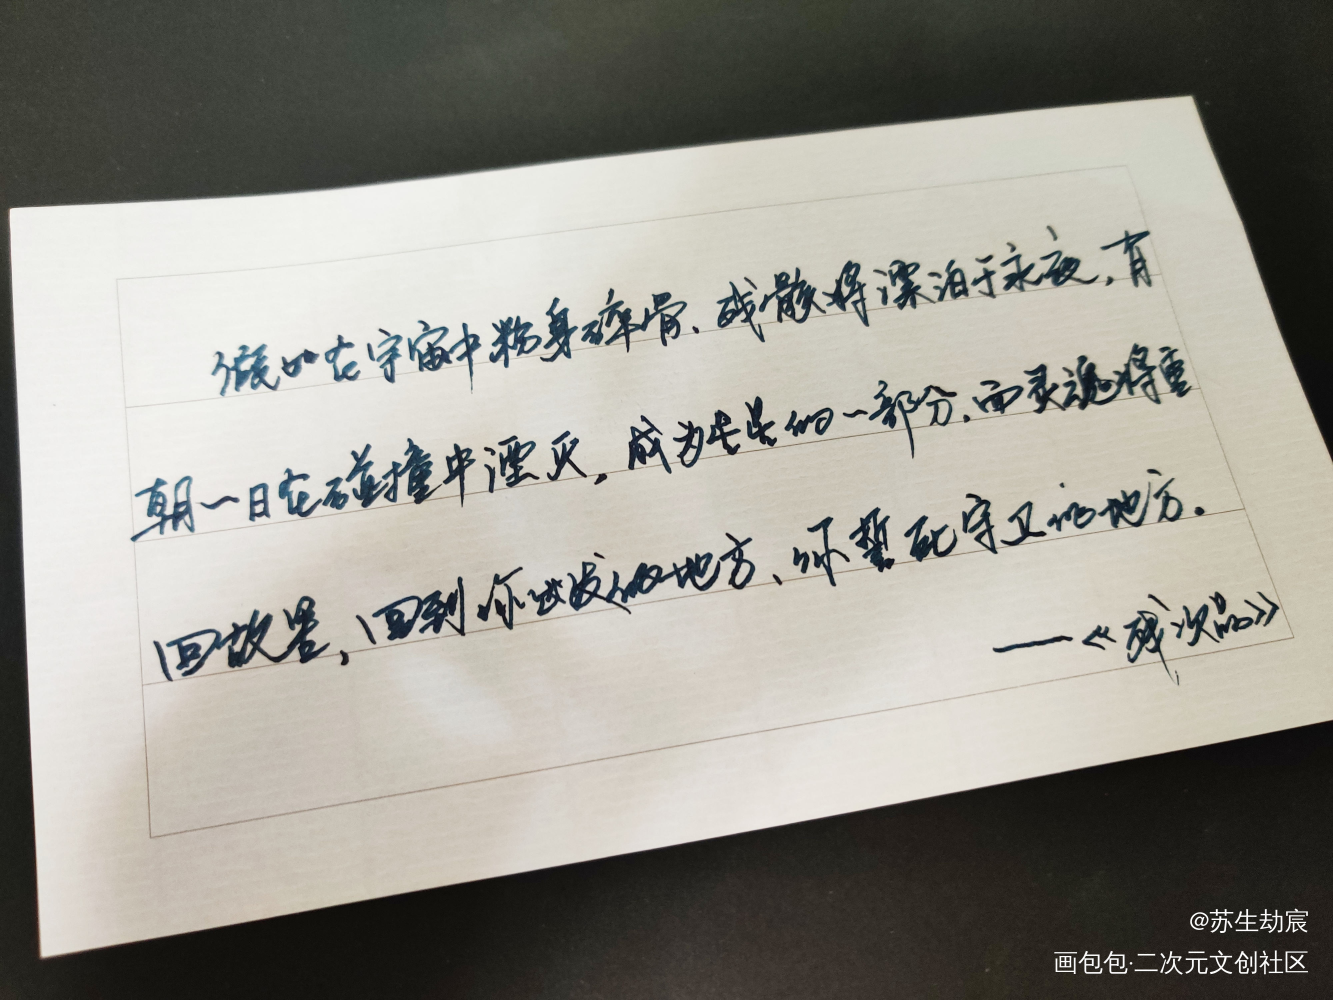 假如在宇宙中粉身碎骨、残骸将漂泊于永夜，有
朝一日在碰撞中湮灭，成为尘星的一部分，而灵魂将重
回故里，回到你出发的地方、你誓死守卫的地方。
——《残次品》
@苏生劫宸
画包包·二次元文创社区